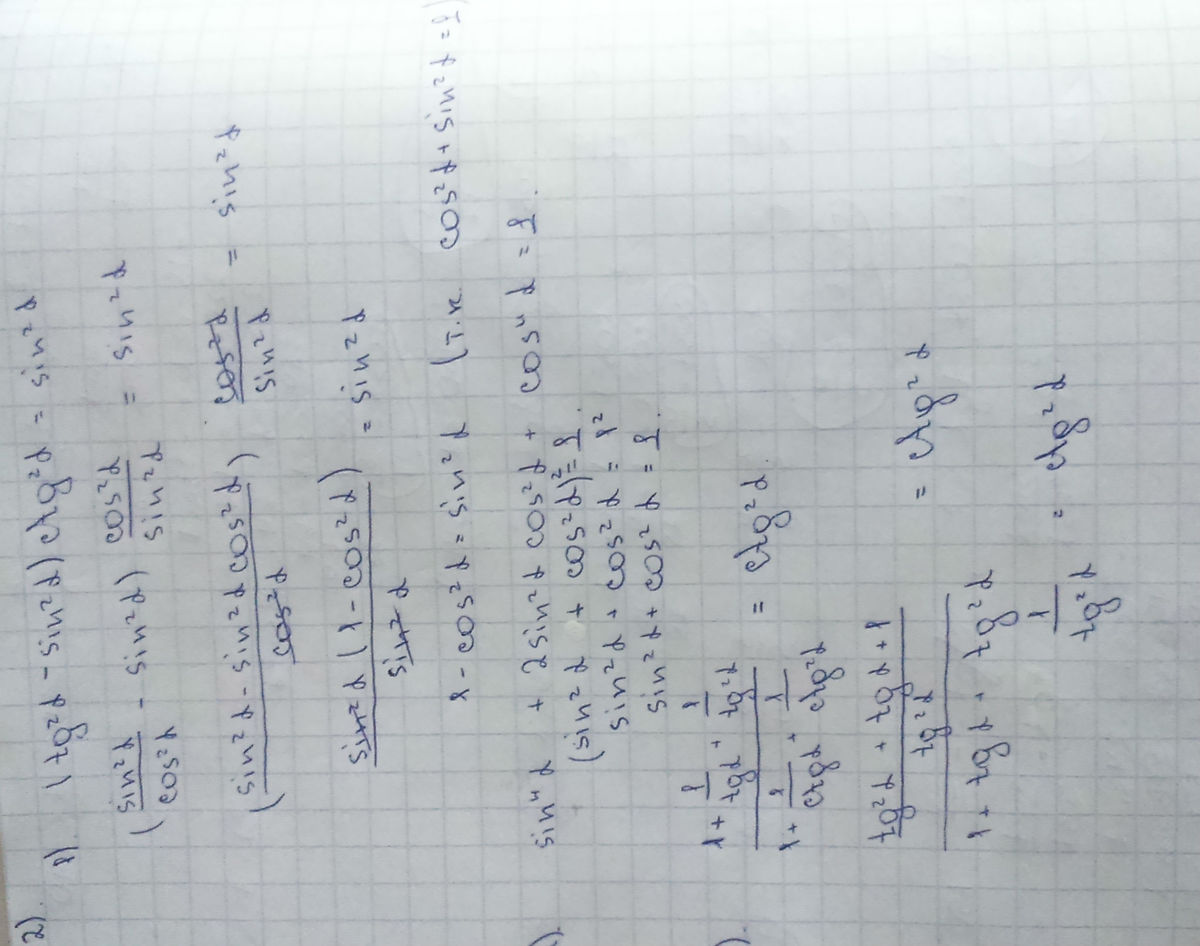 2).
1). (tg²α - sin²α) ctg²α = sin²α
(sin²α/cos²α - sin²α) cos²α/sin²α = sin²α
(sin²α - sin²α cos²α)/cos²α cos²α/sin²α = sin²α
sin²α (1 - cos²α)/sin²α = sin²α
1 - cos²α = sin²α (т.к. cos²α + sin²α = 1)
). sin⁴α + 2sin²α cos²α + cos⁴α = 1.
(sin²α + cos²α)² = 1.
sin²α + cos²α = 1²
sin²α + cos²α = 1.
). (1 + 1/tgα + 1/tg²α)/(1 + 1/ctgα + 1/ctg²α) = ctg²α.
((tg²α + tgα + 1)/tg²α)/(1 + tgα + tg²α) = ctg²α
1/tg²α = ctg²α